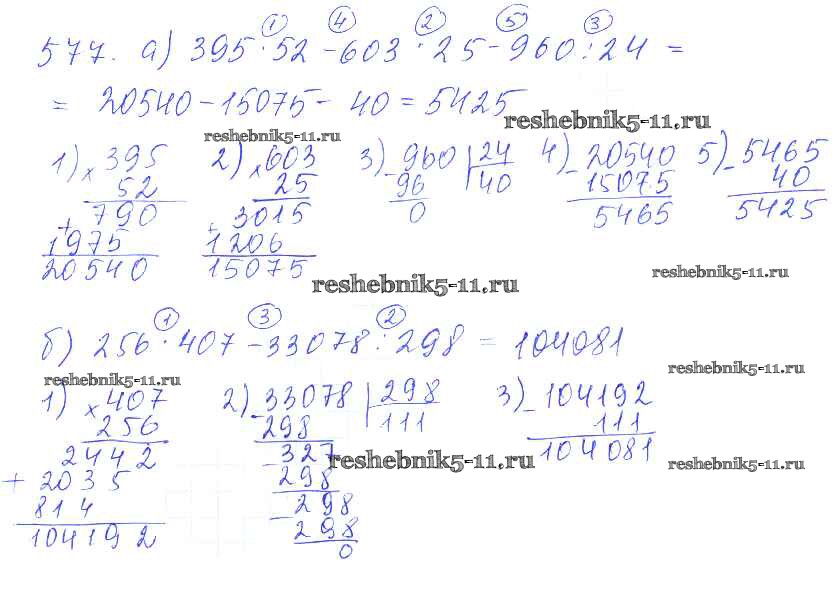 577. а) 395 · 52 - 603 · 25 - 960 : 24 =
① ④ ② ⑤ ③
= 20540 - 15075 - 40 = 5425
reshebnik5-11.ru
reshebnik5-11.ru
1) × 395
52
790
+
1975
20540
2) × 603
25
3015
+
1206
15075
3) - 960 | 24
96 40
0
4) - 20540
15075
5465
5) - 5465
40
5425
reshebnik5-11.ru
reshebnik5-11.ru
① ③ ②
б) 256 · 407 - 33078 : 298 = 104081
reshebnik5-11.ru
reshebnik5-11.ru
1) × 407
256
2442
+ 2035
814
104192
2) - 33078 | 298
298 111
- 327
298
- 298
298
0
3) - 104192
111
104081
reshebnik5-11.ru
reshebnik5-11.ru